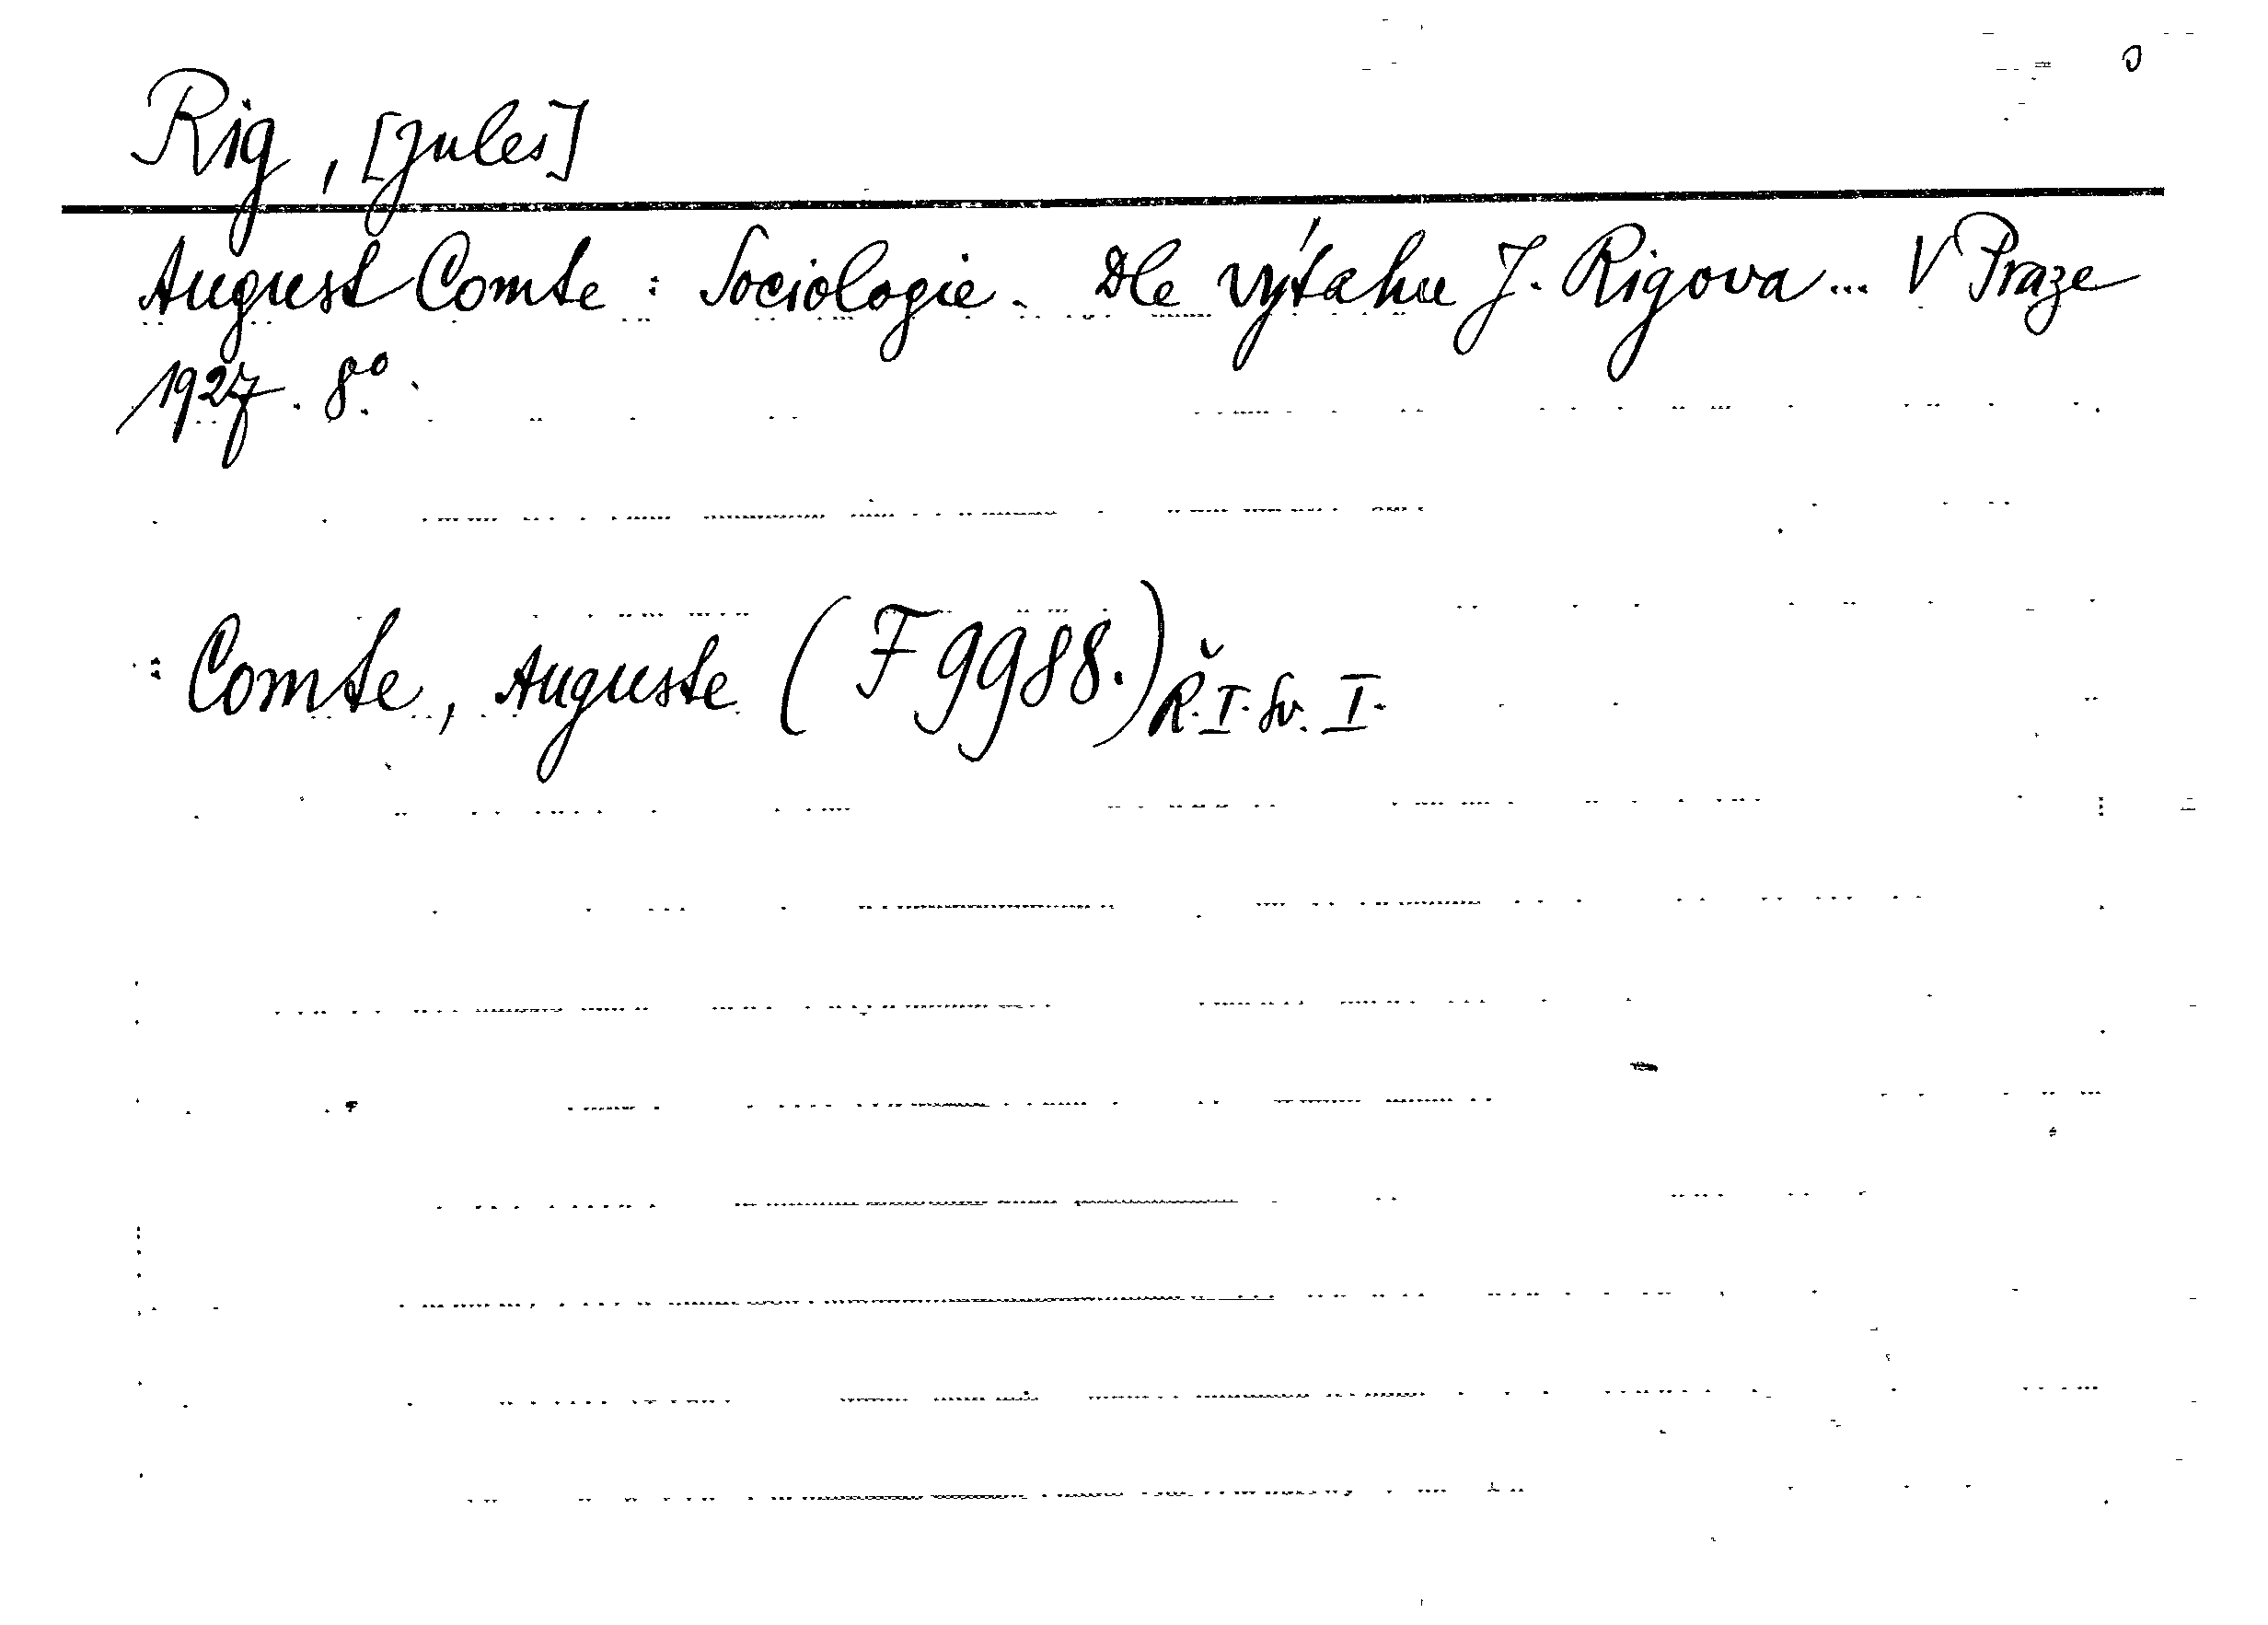 Rig, [Jules]
August Comte : Sociologie. Dle výtahu J. Rigova... V Praze
1927. 8°.
: Comte, Auguste (F 9988.) Ř. I. Sv. I.